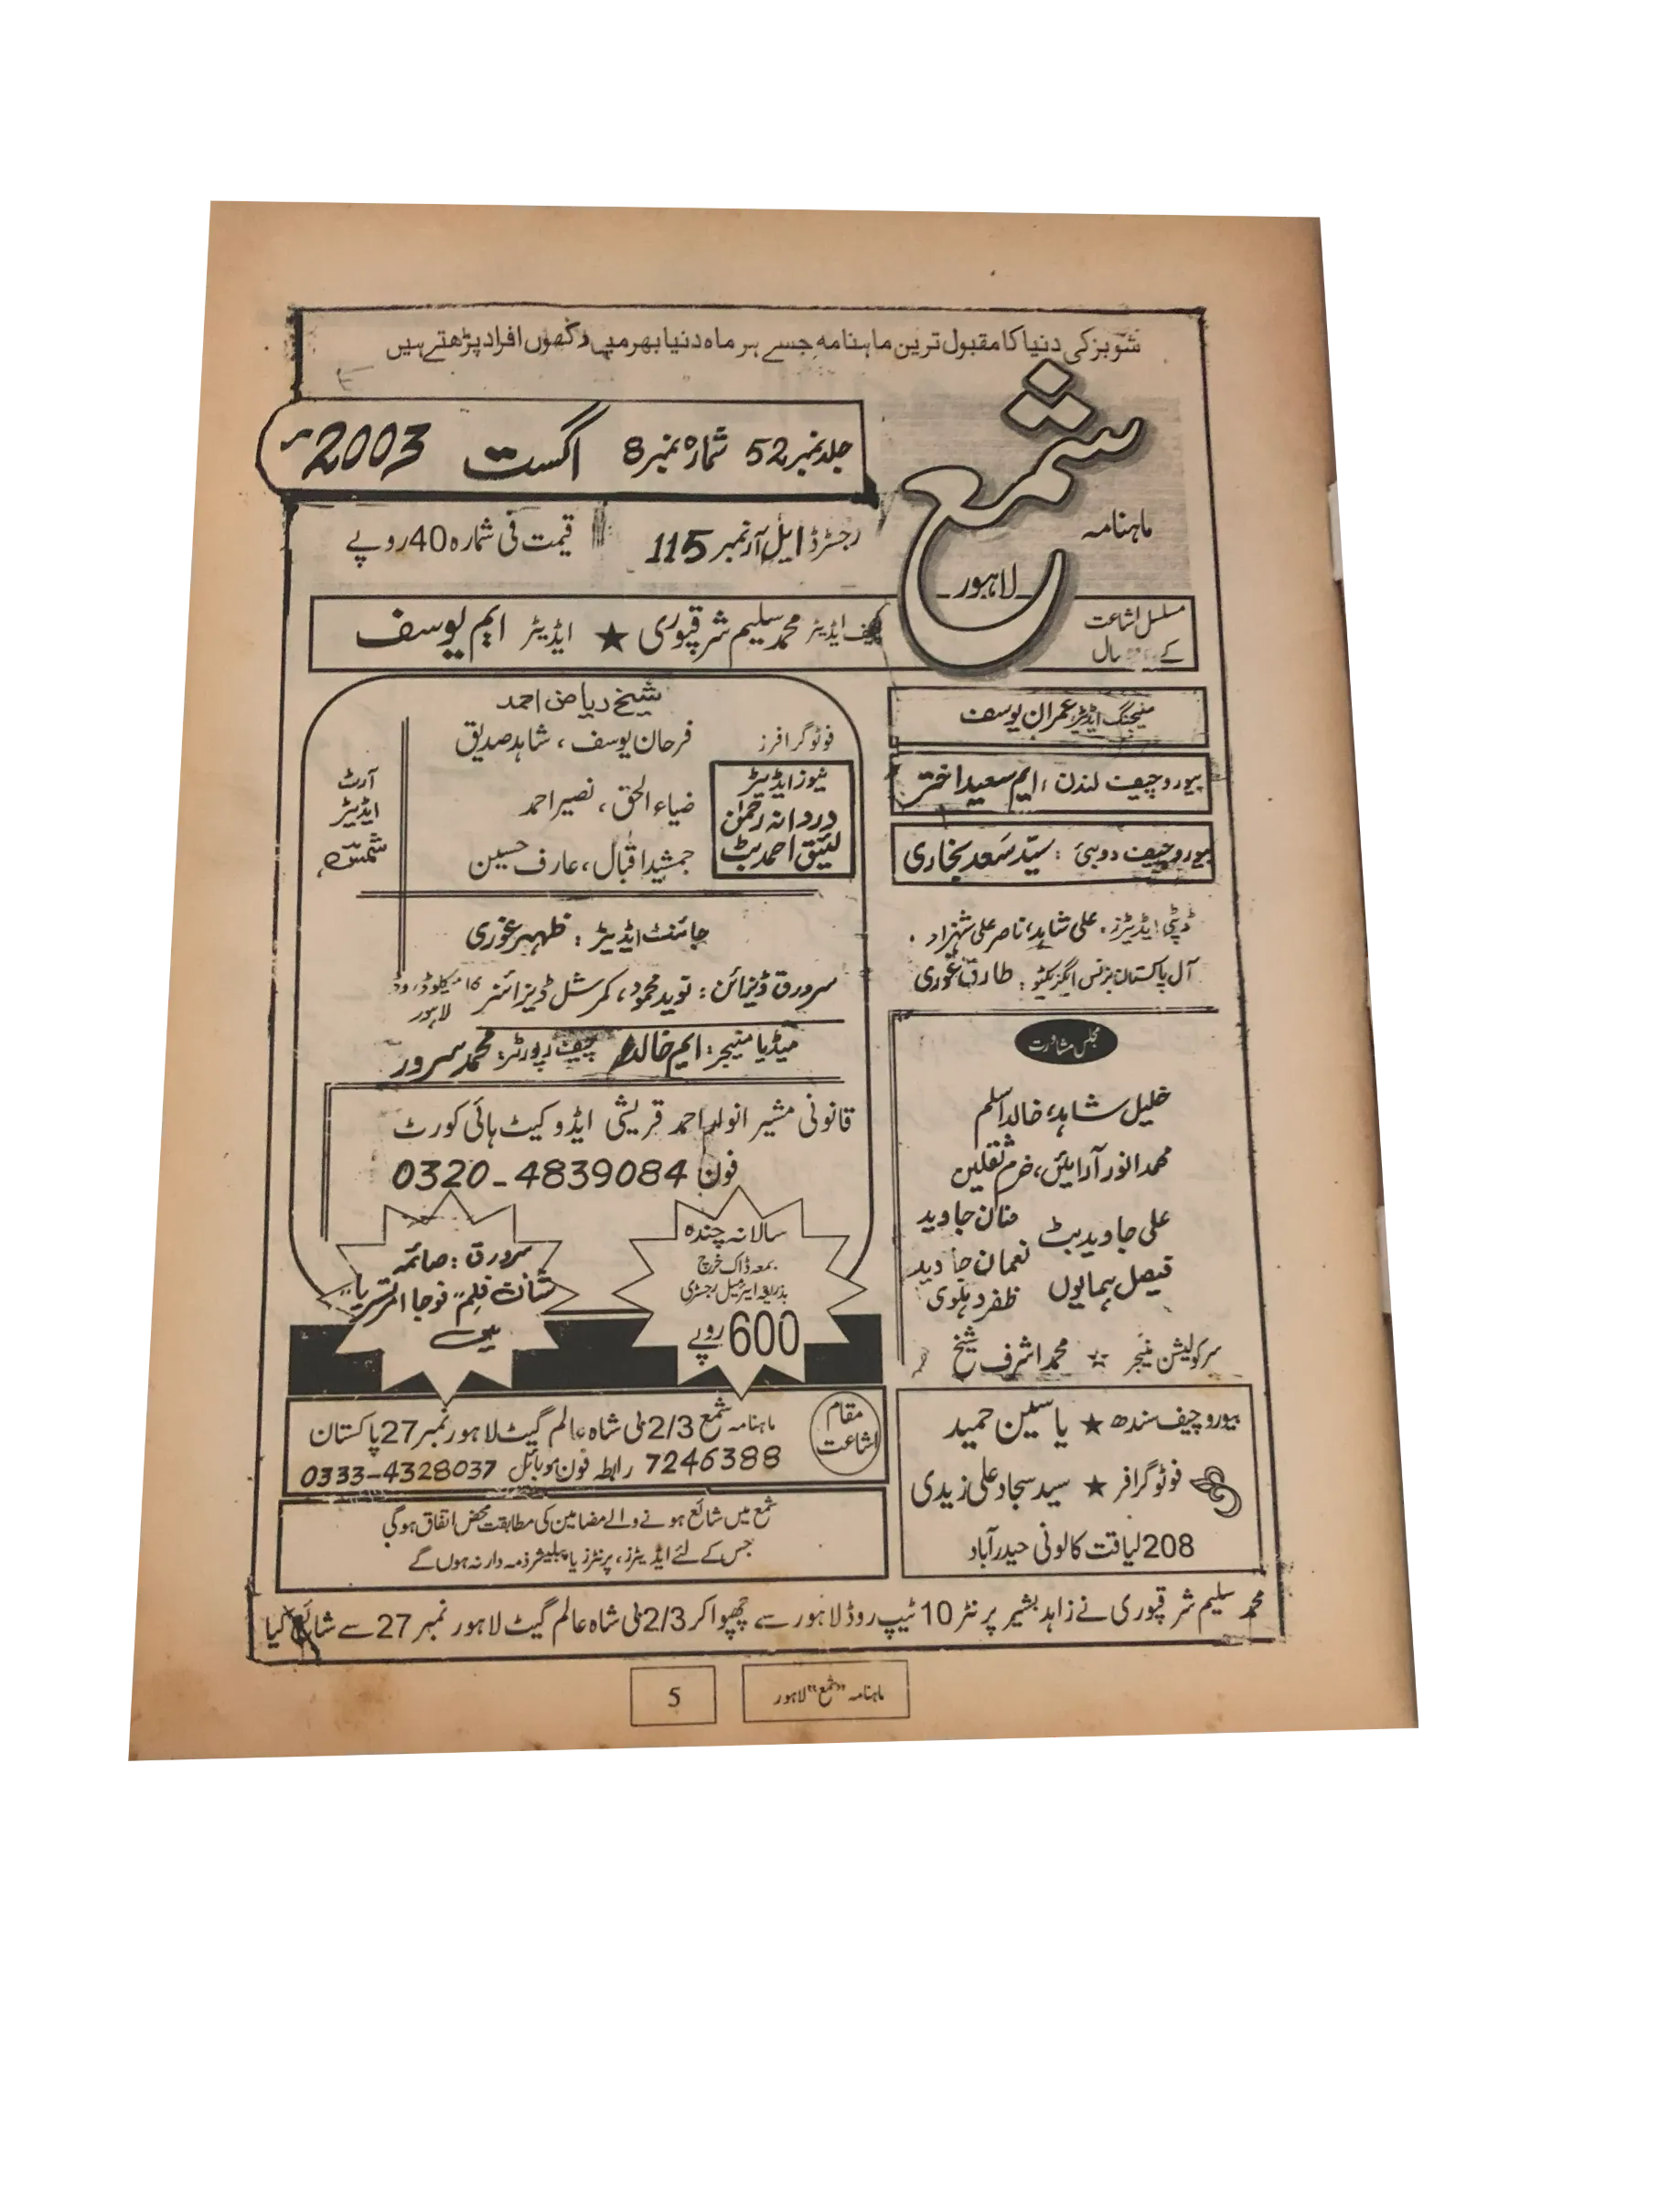 شوبز کی دنیا کا مقبول ترین ماہنامہ جسے ہر ماہ دنیا بھر میں لاکھوں افراد پڑھتے ہیں
ماہنامہ
شمع
لاہور
جلد نمبر 52 شمارہ نمبر 8 اگست 2003ء
رجسٹرڈ ایل آر نمبر 115
قیمت فی شمارہ 40 روپے
مسلسل اشاعت
کے سال
چیف ایڈیٹر محمد سلیم شرقپوری ★ ایڈیٹر ایم یوسف
منیجنگ ایڈیٹر: عمران یوسف
بیورو چیف لندن: ایم سعید اختر
بیورو چیف دوبئی: سیّد سعد بخاری
ڈپٹی ایڈیٹرز: علی شاہد، ناصر علی شہزاد
آل پاکستان بزنس ایگزیکٹو: طارق غوری
مجلس مشاورت
خلیل شاہد، خالد اسلم
محمد انور آرائیں، خرم ثقلین
علی جاوید بٹ منان جاوید
فیصل ہمایوں نعمان جاوید
ظفر دہلوی
سرکولیشن منیجر ☆ محمد اشرف شیخ
بیورو چیف سندھ ★ یاسین حمید
فوٹو گرافر ★ سید سجاد علی زیدی
208 لیاقت کالونی حیدرآباد
شیخ ریاض احمد
فوٹو گرافرز
فرحان یوسف، شاہد صدیق
ضیاء الحق، نصیر احمد
جمشید اقبال، عارف حسین
نیوز ایڈیٹر
دردانہ رحمٰن
لئیق احمد بٹ
آرٹ
ایڈیٹر
شمسی
جائنٹ ایڈیٹر: ظہیر غوری
سرورق ڈیزائن: نوید محمود، کمرشل ڈیزائنر 16 میکلوڈ روڈ
لاہور
میڈیا منیجر: ایم خالد چیف رپورٹر: محمد سرور
قانونی مشیر انوار احمد قریشی ایڈوکیٹ ہائی کورٹ
فون 0320-4839084
سالانہ چندہ
بمعہ ڈاک خرچ
بذریعہ ایئرمیل رجسٹری
600 روپے
سرورق: صائمہ
شان فلم "نوجا امرتسریا"
میں
مقام
اشاعت
ماہنامہ شمع 2/3 ٹی شاہ عالم گیٹ لاہور نمبر 27 پاکستان
7246388 رابطہ فون موبائل 0333-4328037
شمع میں شائع ہونے والے مضامین کی مطابقت محض اتفاق ہوگی
جس کے لئے ایڈیٹرز، پرنٹرز یا پبلیشر ذمہ دار نہ ہوں گے
محمد سلیم شرقپوری نے زاہد بشیر پرنٹر 10 ٹیپ روڈ لاہور سے چھپوا کر 2/3 ٹی شاہ عالم گیٹ لاہور نمبر 27 سے شائع کیا
ماہنامہ "شمع" لاہور
5